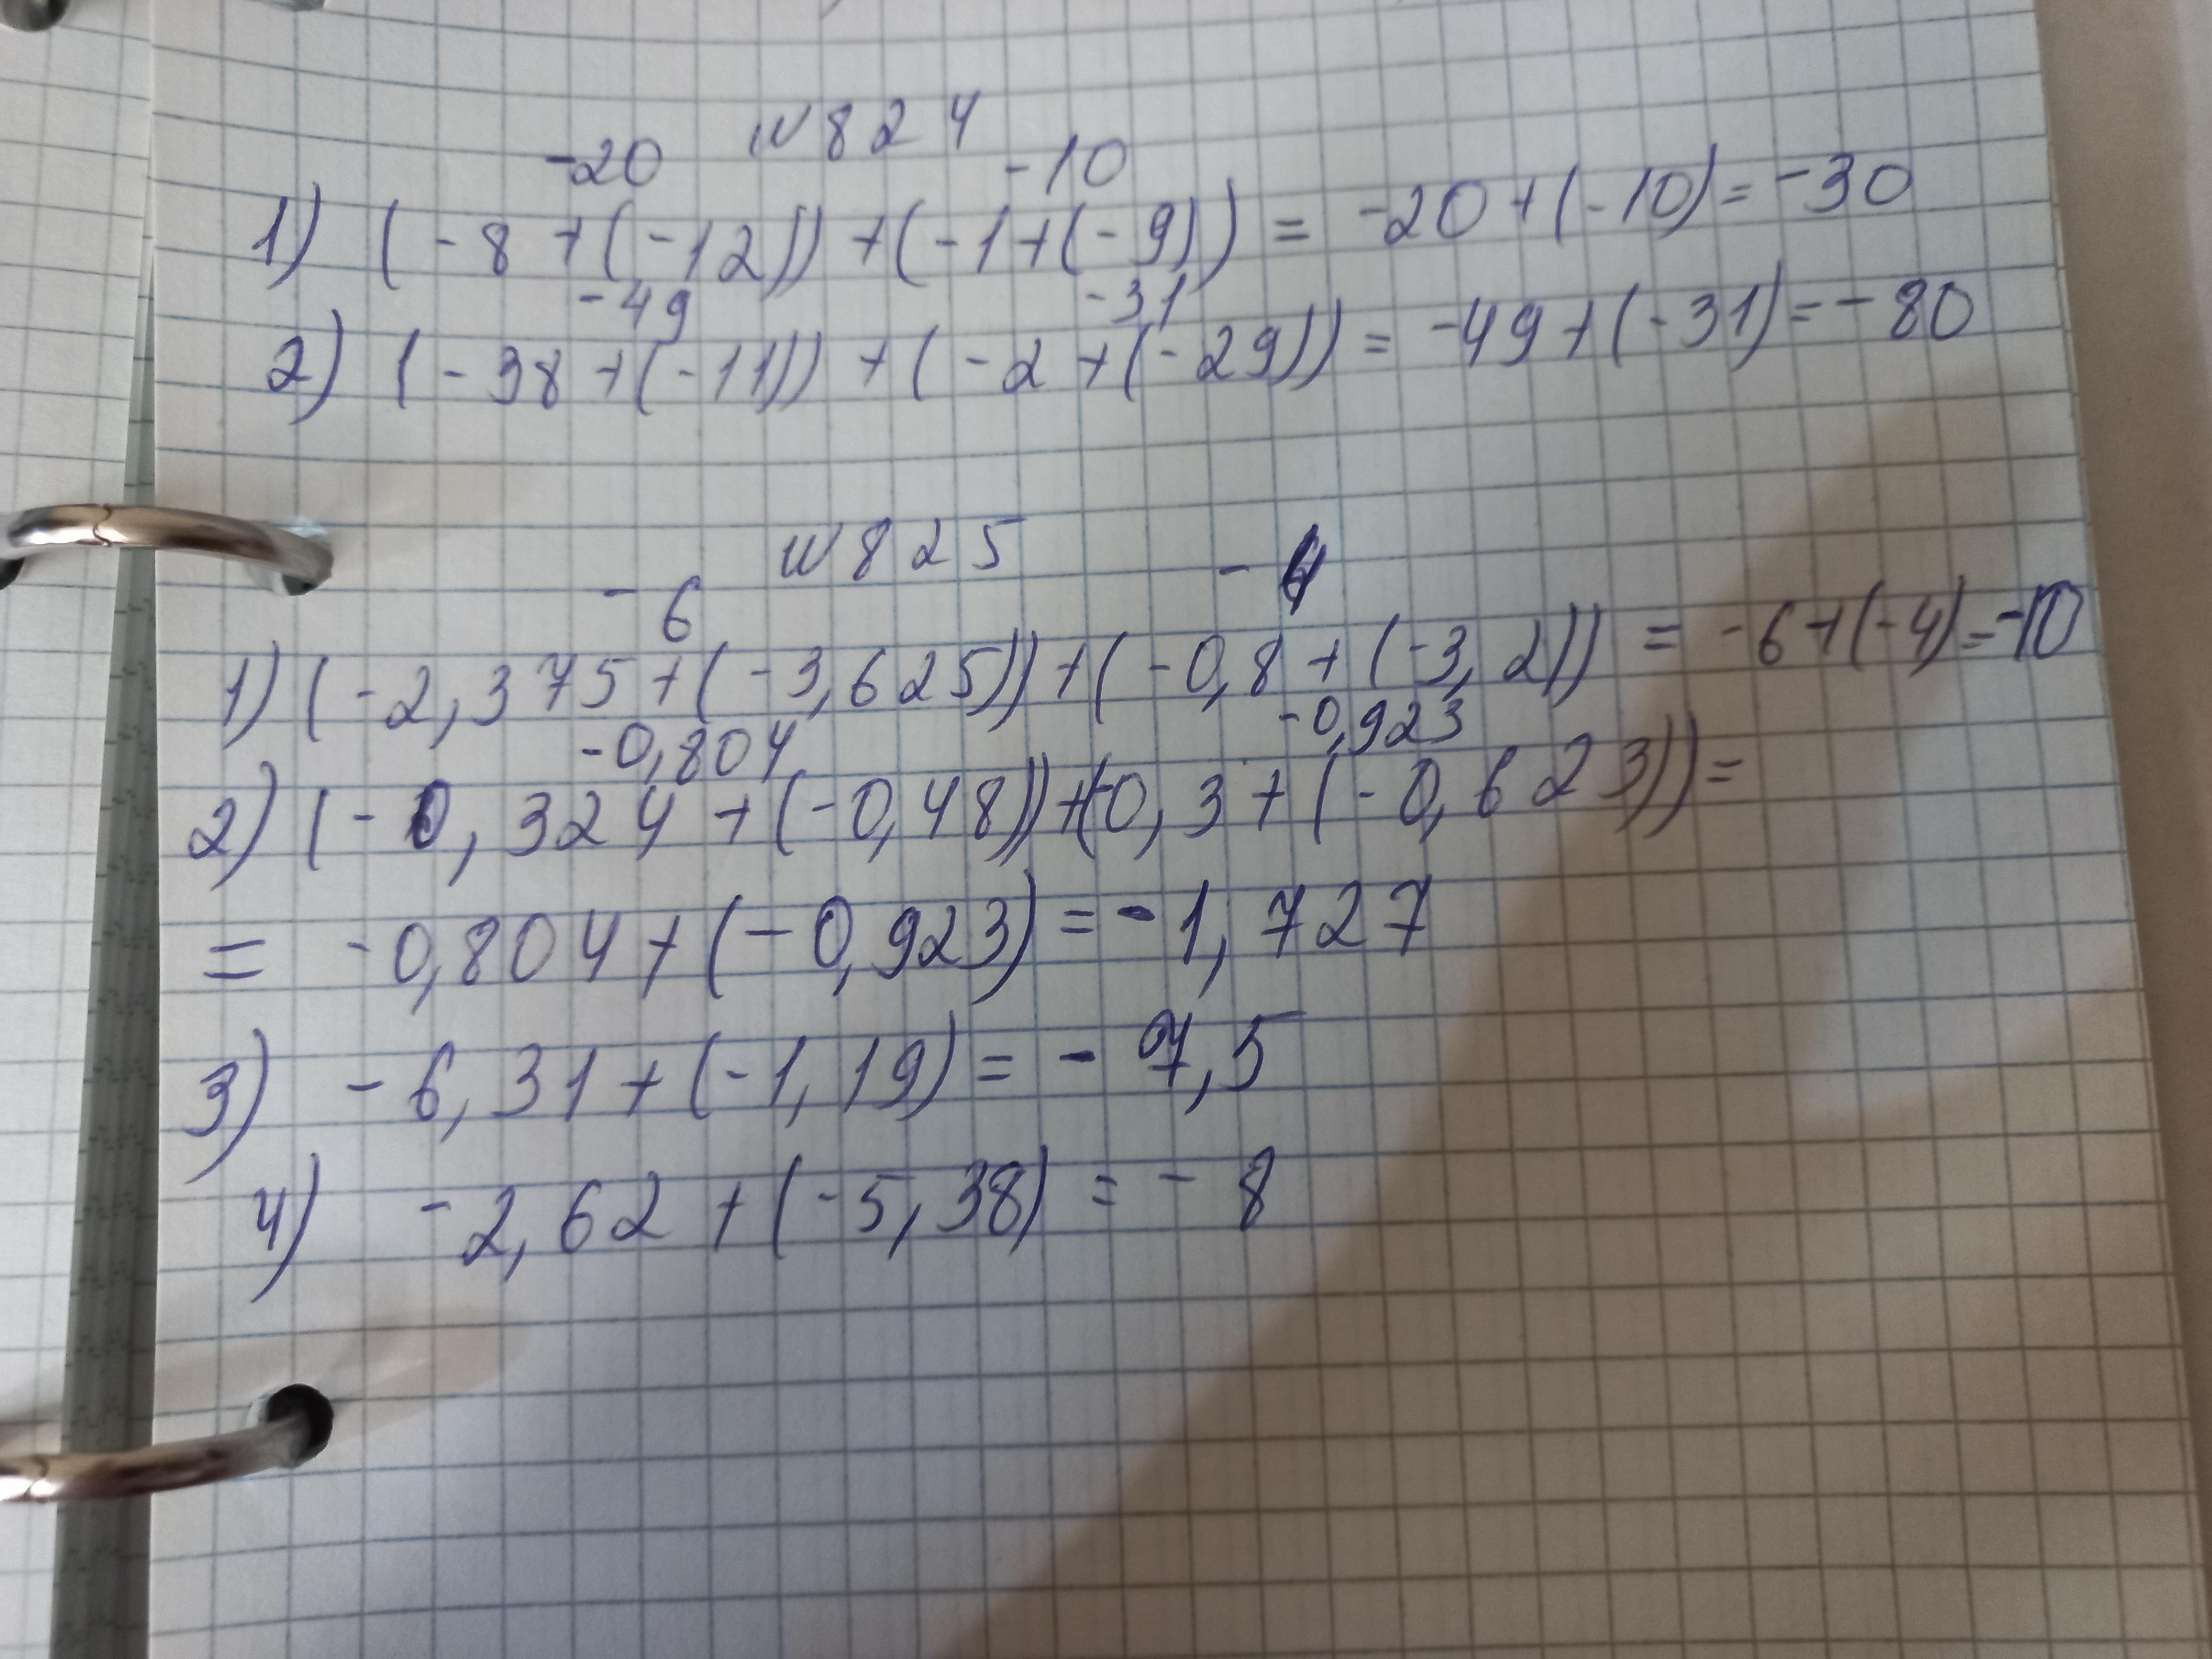 N 824
-20 -10
1) (-8+(-12))+(-1+(-9))= -20+(-10)=-30
-49 -31
2) (-38+(-11))+(-2+(-29))= -49+(-31)=-80
N 825
-6 -4
1) (-2,375+(-3,625))+(-0,8+(-3,2))= -6+(-4)=-10
-0,804 -0,923
2) (-0,324+(-0,48))+(-0,3+(-0,623))=
= -0,804+(-0,923)=-1,727
3) -6,31+(-1,19)=-7,5
4) -2,62+(-5,38)=-8